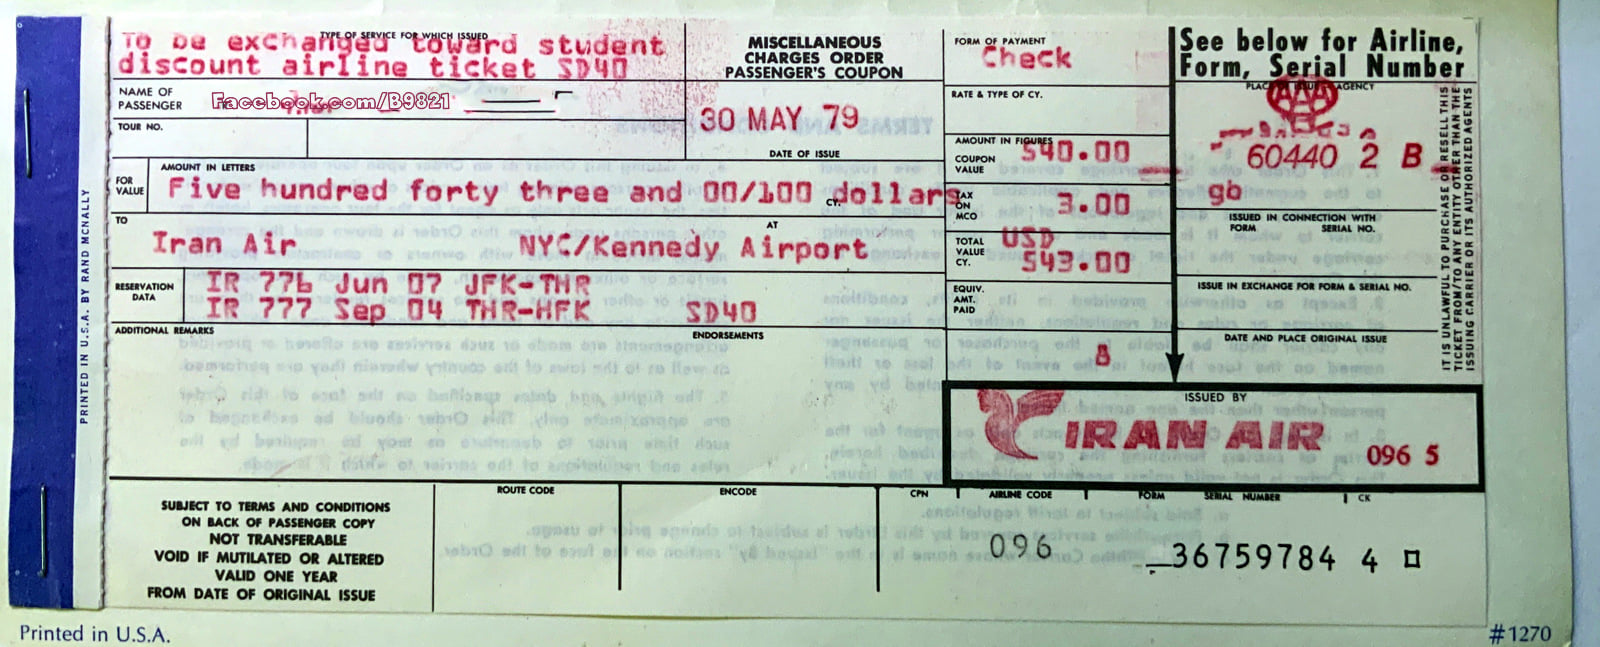 TYPE OF SERVICE FOR WHICH ISSUED
To be exchanged toward student
discount airline ticket SD40
NAME OF
PASSENGER
Facebook.com/B9821
TOUR NO.
MISCELLANEOUS
CHARGES ORDER
PASSENGER'S COUPON
30 MAY 79
DATE OF ISSUE
FORM OF PAYMENT
Check
RATE & TYPE OF CY.
See below for Airline,
Form, Serial Number
PLACE OF ISSUE - AGENCY
AAA
60440 2 B
gb
IT IS UNLAWFUL TO PURCHASE OR RESELL THIS
TICKET FROM/TO ANY ENTITY OTHER THAN THE
ISSUING CARRIER OR ITS AUTHORIZED AGENTS
FOR
VALUE
AMOUNT IN LETTERS
Five hundred forty three and 00/100 dollars
CY.
AMOUNT IN FIGURES
COUPON
VALUE
540.00
TAX
ON
MCO
3.00
TOTAL
VALUE
CY.
USD
543.00
EQUIV.
AMT.
PAID
8
ISSUED IN CONNECTION WITH
FORM SERIAL NO.
ISSUE IN EXCHANGE FOR FORM & SERIAL NO.
DATE AND PLACE ORIGINAL ISSUE
TO
Iran Air
AT
NYC/Kennedy Airport
RESERVATION
DATA
IR 776 Jun 07 JFK-THR
IR 777 Sep 04 THR-HFK SD40
ADDITIONAL REMARKS
ENDORSEMENTS
ISSUED BY
IRAN AIR
096 5
SUBJECT TO TERMS AND CONDITIONS
ON BACK OF PASSENGER COPY
NOT TRANSFERABLE
VOID IF MUTILATED OR ALTERED
VALID ONE YEAR
FROM DATE OF ORIGINAL ISSUE
ROUTE CODE
ENCODE
CPN
AIRLINE CODE
FORM
SERIAL NUMBER
CK
096
36759784 4
PRINTED IN U.S.A. BY RAND MCNALLY
Printed in U.S.A.
#1270